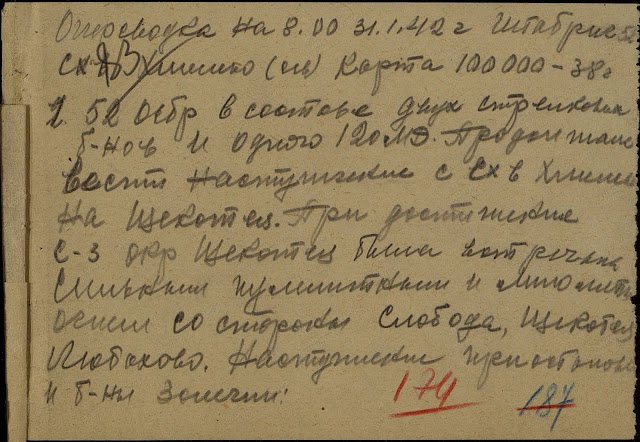 Оперсводка на 8.00 31.1.42 г Штабриг 52
Хмелино (иск) Карта 100000-38г
1. 52 осбр в составе двух стрелковых
б-нов и одного 120 МД. Продолжала
вести наступление с Хмели
на Щекотец. При достижение
С-З окр Щекотец была встречена
Сильным пулеметным и минометн
огнем со стороны Слобода, Щекотец
Любохово. Наступление приостановл
и б-ны залегли:
174 187